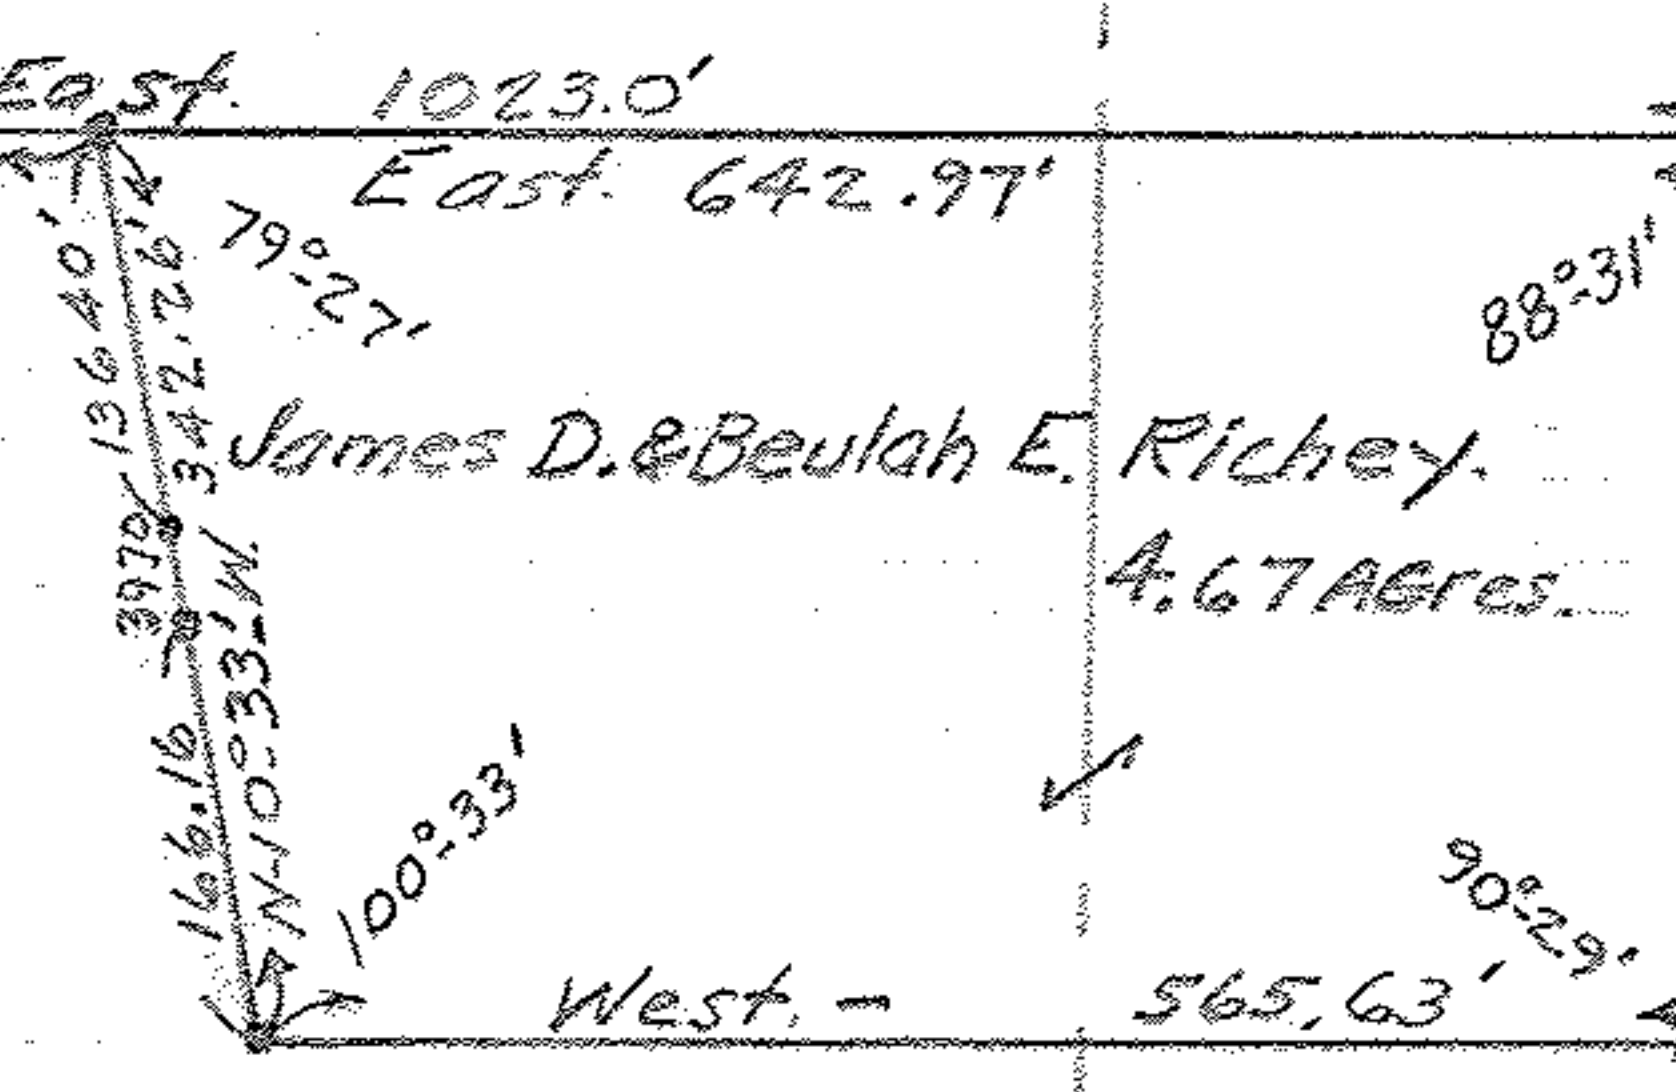 East. 1023.0'
East. 642.97'
79°-27'
88°-31'
136.40'
342.26'
James D. & Beulah E. Richey.
4.67 Acres.
39.70
N-10°-33'-W.
166.16
100°-33'
90°-29'
West. - 565.63'